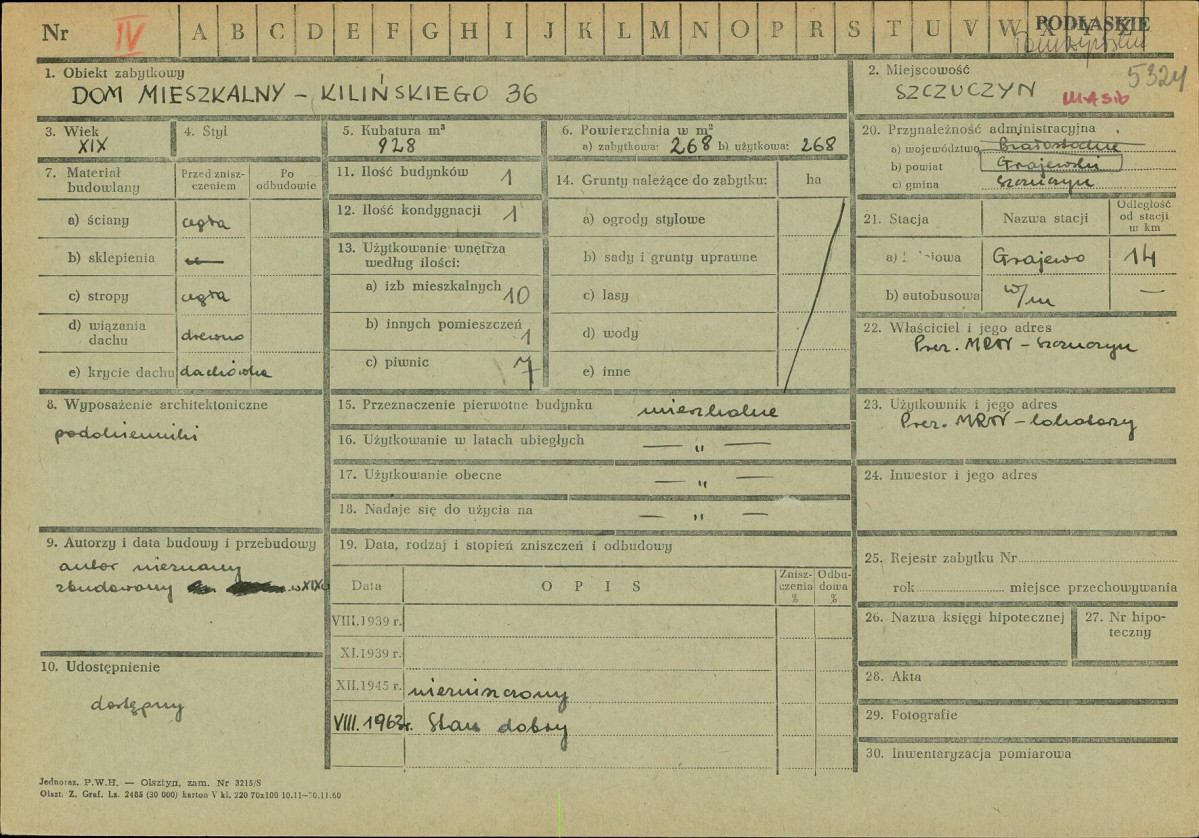 Nr IV A B C D E F G H I J K L M N O P R S T U V W X Y Z
PODLASKIE
1. Obiekt zabytkowy
DOM MIESZKALNY – KILIŃSKIEGO 36
2. Miejscowość
SZCZUCZYN
5324
3. Wiek
XIX
4. Styl
5. Kubatura m³
928
6. Powierzchnia w m²
a) zabytkowa: 268 b) użytkowa: 268
20. Przynależność administracyjna
a) województwo Białostockie
b) powiat Grajewski
c) gmina Szczuczyn
7. Materiał budowlany
Przed zniszczeniem
Po odbudowie
a) ściany cegła
b) sklepienia
c) stropy cegła
d) wiązania dachu drewno
e) krycie dachu dachówka
11. Ilość budynków 1
12. Ilość kondygnacji 1
13. Użytkowanie wnętrza według ilości:
a) izb mieszkalnych 10
b) innych pomieszczeń 1
c) piwnic 7
14. Grunty należące do zabytku: ha
a) ogrody stylowe
b) sady i grunty uprawne
c) lasy
d) wody
e) inne
21. Stacja Nazwa stacji Odległość od stacji w km
a) Grajewo 14
b) autobusowa w/m —
22. Właściciel i jego adres
Prez. MRN – Szczuczyn
8. Wyposażenie architektoniczne
podokienniki
15. Przeznaczenie pierwotne budynku mieszkalne
16. Użytkowanie w latach ubiegłych — „ —
17. Użytkowanie obecne — „ —
18. Nadaje się do użycia na — „ —
23. Użytkownik i jego adres
Prez. MRN – lokatorzy
24. Inwestor i jego adres
9. Autorzy i data budowy i przebudowy
autor nieznany
zbudowany w XIX
19. Data, rodzaj i stopień zniszczeń i odbudowy
Data OPIS Zniszczenia % Odbudowa %
VIII.1939 r.
XI.1939 r.
XII.1945 r. niezniszczony
VIII.1963 r. Stan dobry
10. Udostępnienie
dostępny
25. Rejestr zabytku Nr
rok miejsce przechowywania
26. Nazwa księgi hipotecznej
27. Nr hipoteczny
28. Akta
29. Fotografie
30. Inwentaryzacja pomiarowa
Jednoraz. P.W.H. — Olsztyn, zam. Nr 3215/S
Olszt. Z. Graf. Lz. 2485 (30 000) karton V kl. 220 70x100 10.11—30.11.60